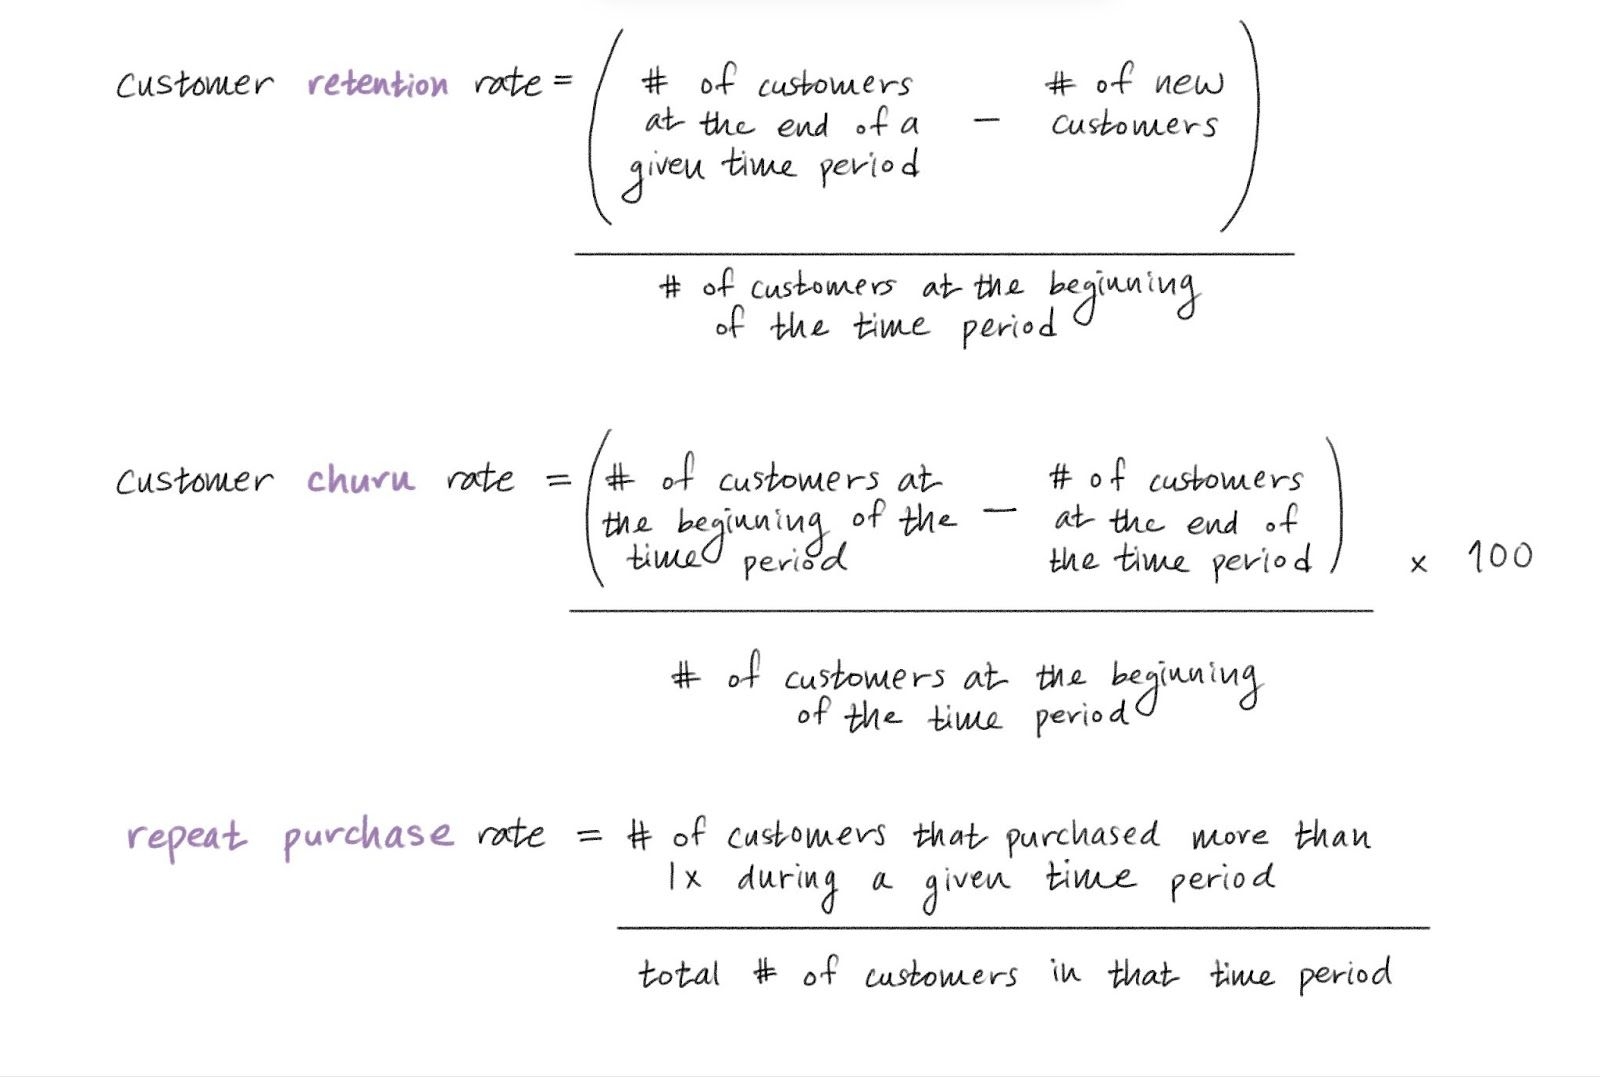 customer retention rate = ( # of customers — # of new )
at the end of a customers
given time period
# of customers at the beginning
of the time period
customer churn rate = ( # of customers at — # of customers )
the beginning of the at the end of
time period the time period x 100
# of customers at the beginning
of the time period
repeat purchase rate = # of customers that purchased more than
1x during a given time period
total # of customers in that time period